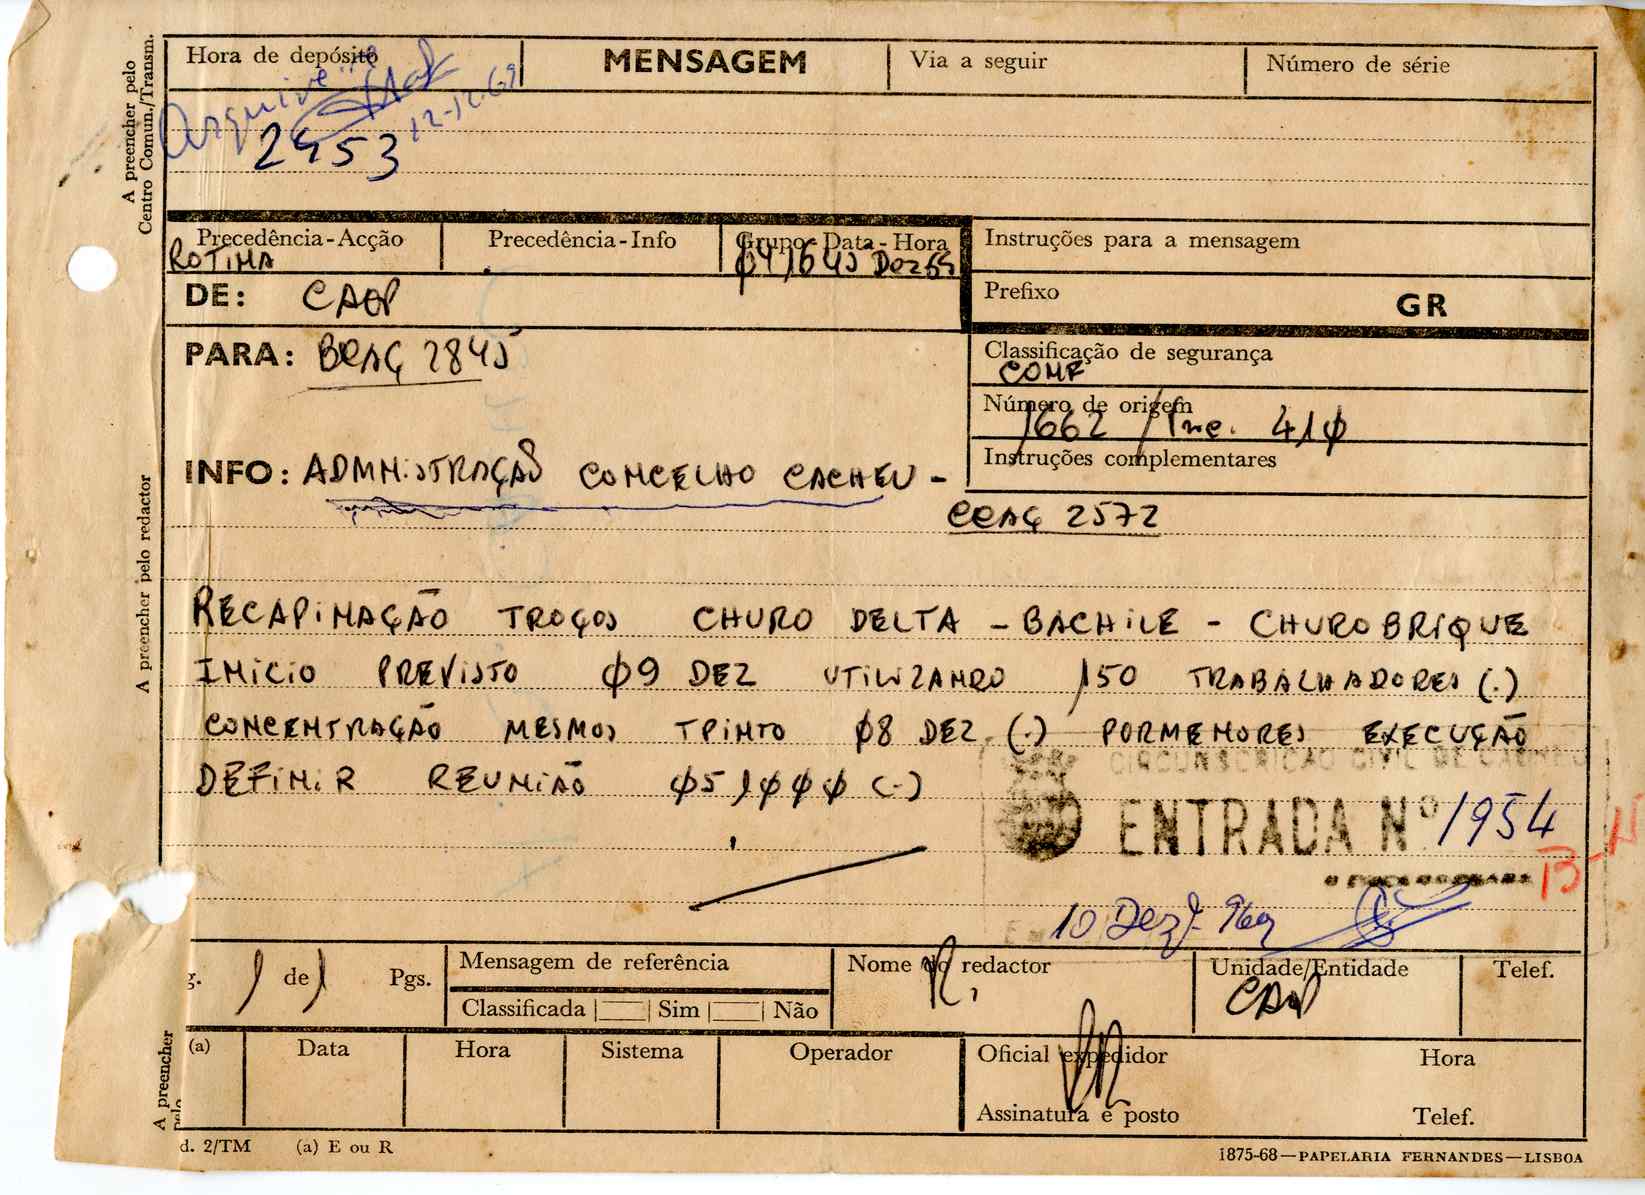 Hora de depósito
MENSAGEM
Via a seguir
Número de série
A preencher pelo
Centro Comun./Transm.
Arquive-se
12-12-69
2453
Precedência-Acção
ROTINA
Precedência-Info
Grupo-Data-Hora
041645 DEZ69
Instruções para a mensagem
DE: CAOP
Prefixo
GR
PARA: BCAÇ 2845
Classificação de segurança
CONF
Número de origem
1662 /
410
INFO: ADMNISTRAÇAÕ CONCELHO CACHEU -
Instruções complementares
CCAÇ 2572
A preencher pelo redactor
RECAPINAÇÃO TROÇOS CHURO DELTA - BACHILE - CHUROBRIQUE
INICIO PREVISTO Ø9 DEZ UTILIZANDO 150 TRABALHADORES (.)
CONCENTRAÇÃO MESMOS TPINTO Ø8 DEZ (.) PORMENORES EXECUÇÃO
DEFINIR REUNIÃO Ø51ØØØ (.)
CIRCUNSCRIÇÃO CIVIL DE CACHEU
ENTRADA Nº 1954
B-4
10 Dezº 969
g. 1 de 1 Pgs.
Mensagem de referência
Classificada Sim Não
Nome do redactor
Unidade/Entidade
CAOP
Telef.
A preencher
pelo
(a)
Data
Hora
Sistema
Operador
Oficial expedidor
Hora
Assinatura e posto
Telef.
d. 2/TM (a) E ou R
1875-68—PAPELARIA FERNANDES—LISBOA